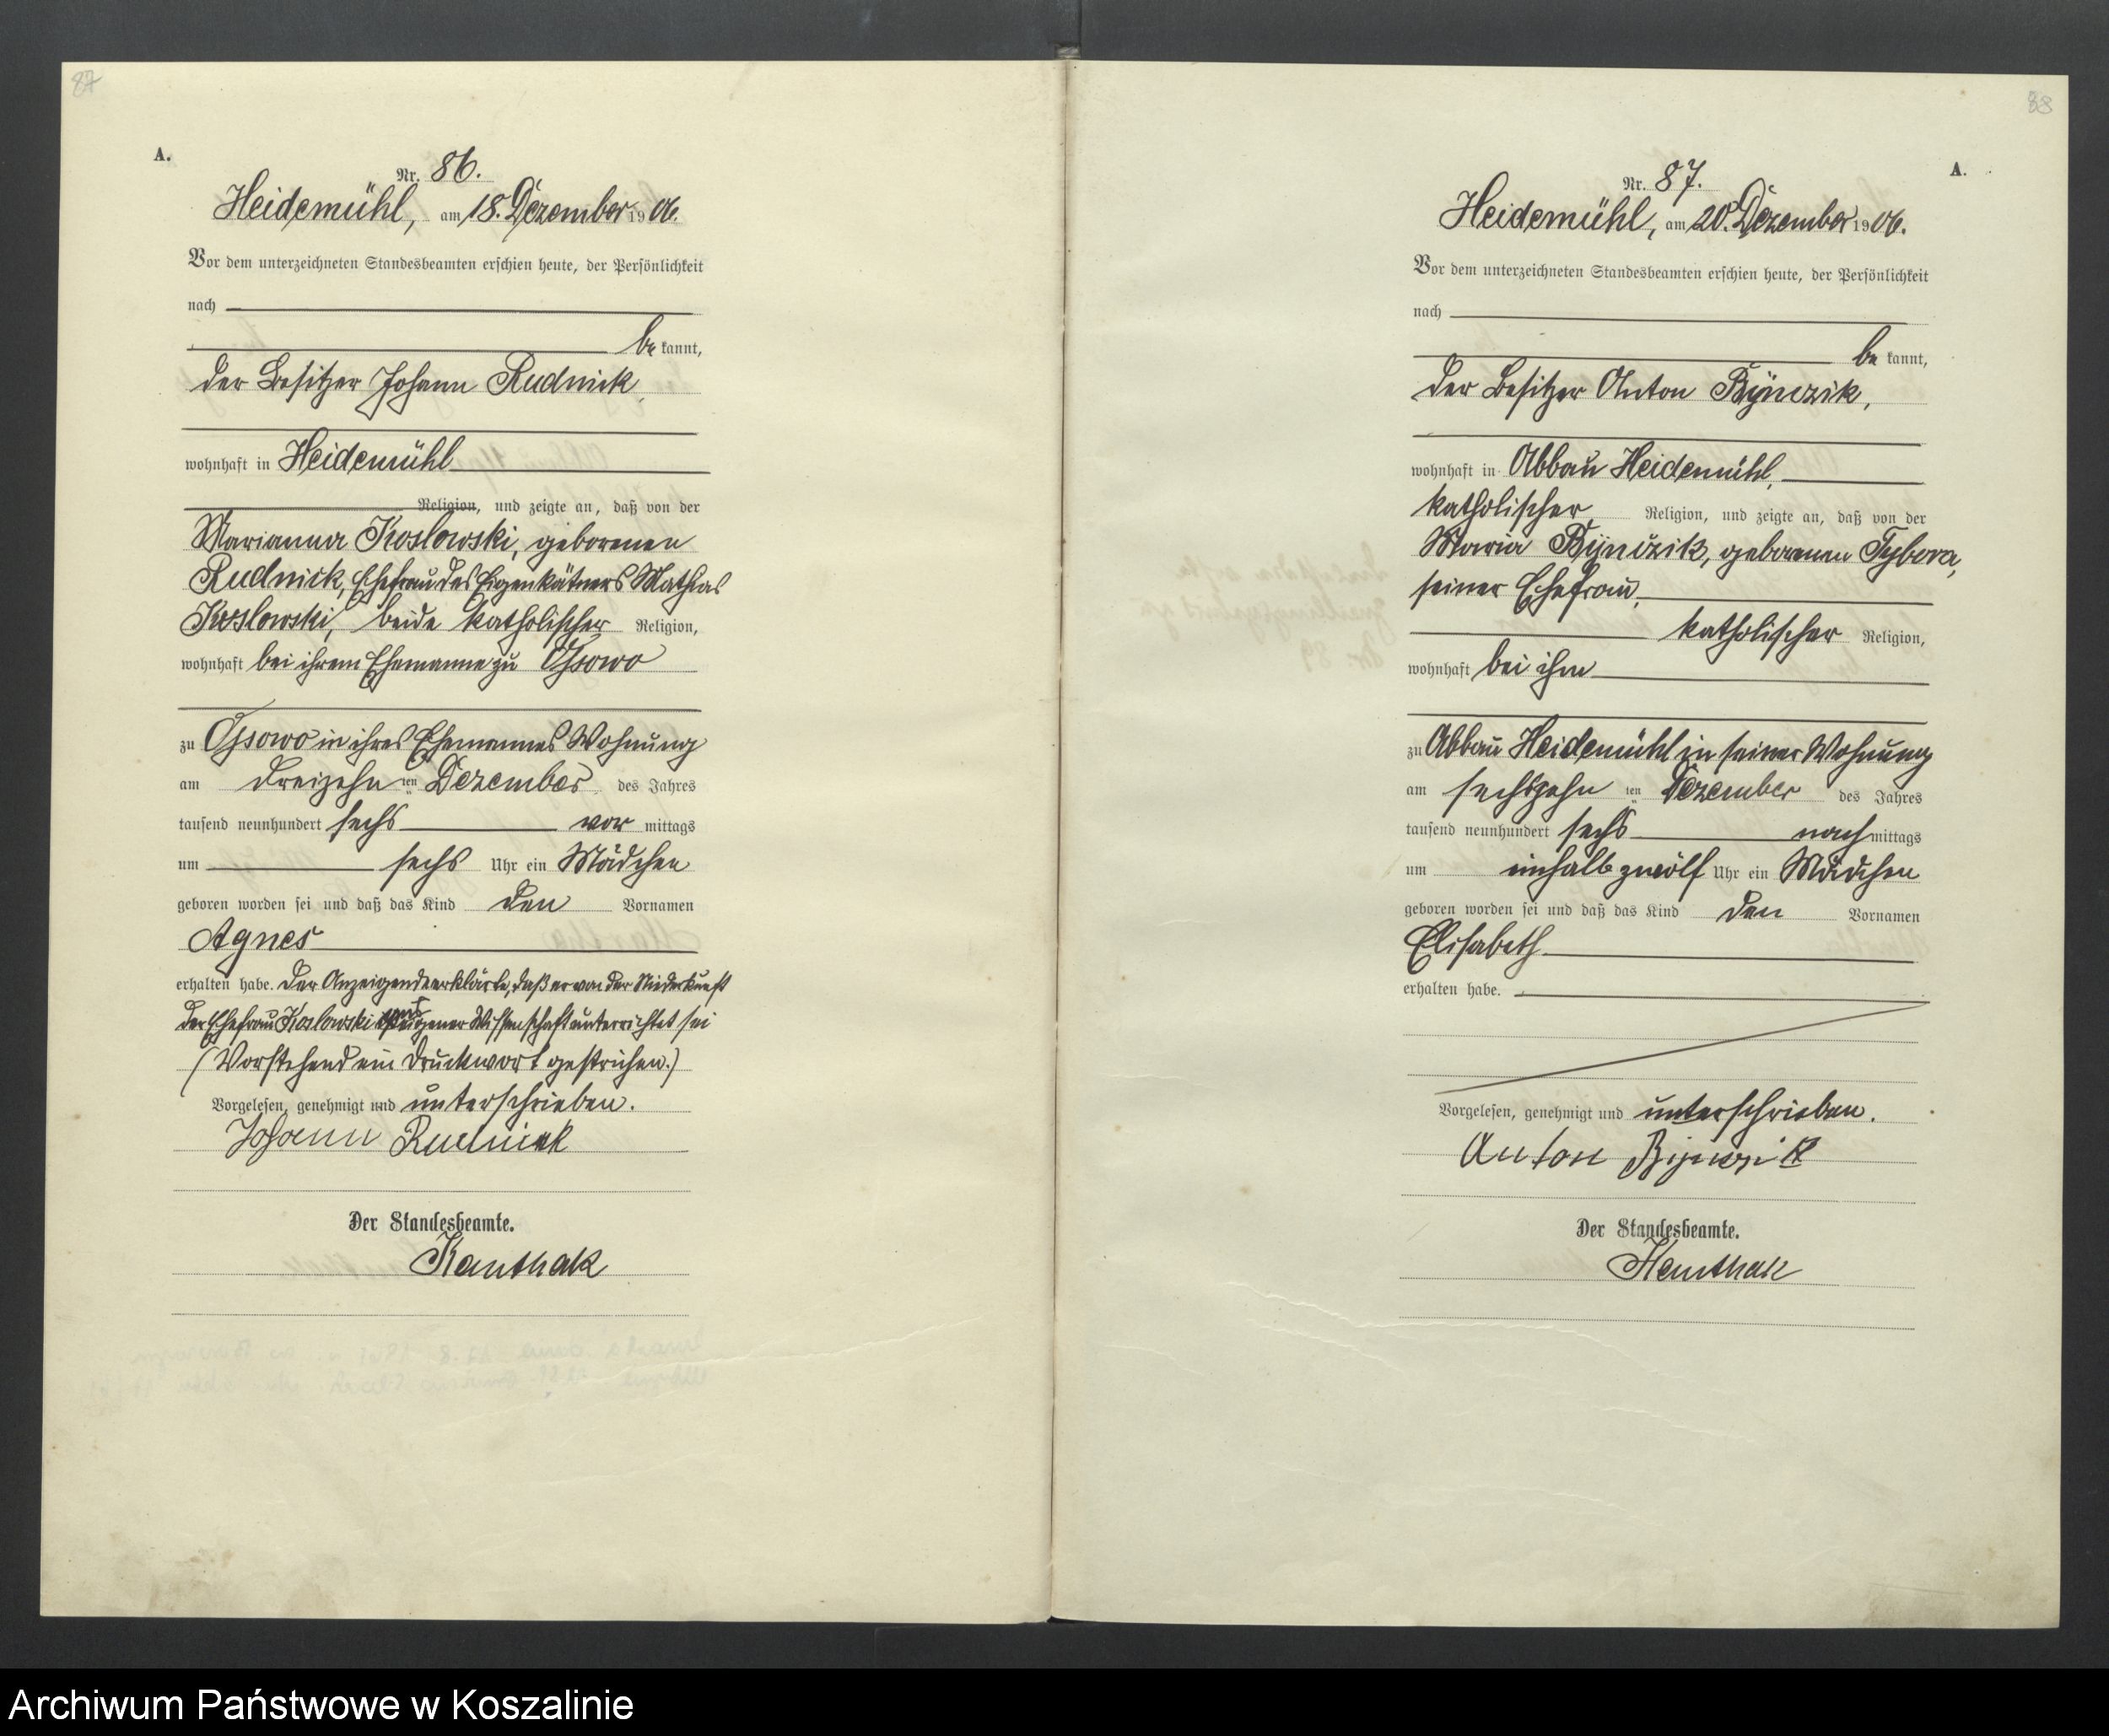 87
A.
Nr. 86.
Heidemühl, am 18. Dezember 1906.
Vor dem unterzeichneten Standesbeamten erschien heute, der Persönlichkeit
nach
be kannt,
der Besitzer Johann Rudnick,
wohnhaft in Heidemühl
Religion, und zeigte an, daß von der
Marianna Koslowski, geborenen
Rudnick, Ehefrau des Eigenkätners Mathias
Koslowski, beide katholischer Religion,
wohnhaft bei ihrem Ehemanne zu Ossowo
zu Ossowo in ihres Ehemannes Wohnung
am dreizehn ten Dezember des Jahres
tausend neunhundert sechs vor mittags
um sechs Uhr ein Mädchen
geboren worden sei und daß das Kind den Vornamen
Agnes
erhalten habe. Der Anzeigende erklärte, daß er von der Niederkunft
der Ehefrau Koslowski aus eigener Wissenschaft unterrichtet sei
(Vorstehend ein Druckwort gestrichen.)
Vorgelesen, genehmigt und unterschrieben.
Johann Rudnick
Der Standesbeamte.
Kanthak
88
A.
Nr. 87.
Heidemühl, am 20. Dezember 1906.
Vor dem unterzeichneten Standesbeamten erschien heute, der Persönlichkeit
nach
be kannt,
der Besitzer Anton Bynczik,
wohnhaft in Abbau Heidemühl,
katholischer Religion, und zeigte an, daß von der
Maria Bynczik, geborenen Tybora,
seiner Ehefrau,
katholischer Religion,
wohnhaft bei ihm
zu Abbau Heidemühl in seiner Wohnung
am sechszehn ten Dezember des Jahres
tausend neunhundert sechs nach mittags
um einhalb zwölf Uhr ein Mädchen
geboren worden sei und daß das Kind den Vornamen
Elisabeth
erhalten habe.
Vorgelesen, genehmigt und unterschrieben.
Anton Bynczik
Der Standesbeamte.
Kanthak
Archiwum Państwowe w Koszalinie